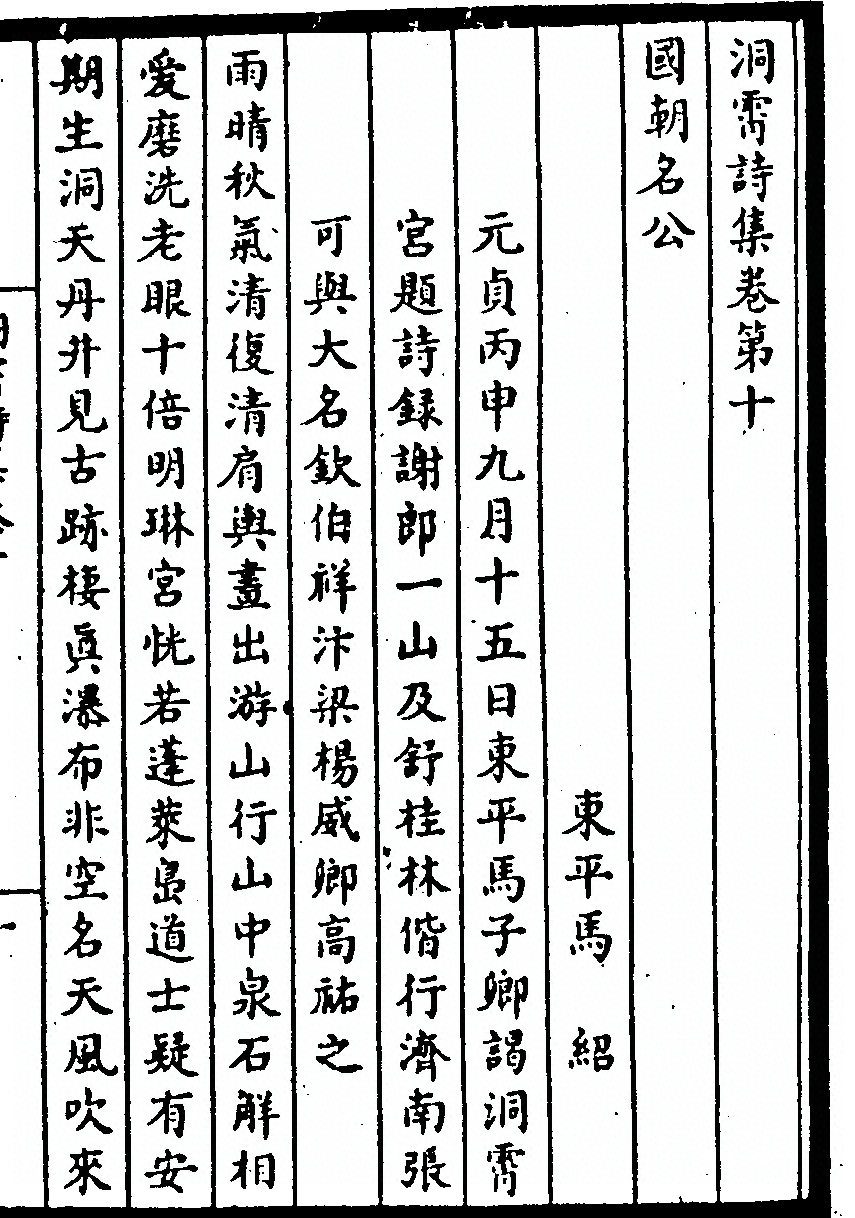 洞霄詩集卷第十
國朝名公
東平馬　紹
元貞丙申九月十五日東平馬子卿謁洞霄
宮題詩録謝郎一山及舒桂林偕行濟南張
可與大名欽伯祥汴梁楊威卿高祐之
雨晴秋氣清復清肩輿晝出游山行山中泉石解相
愛磨洗老眼十倍明琳宮恍若蓬萊島道士疑有安
期生洞天丹井見古跡棲眞瀑布非空名天風吹來